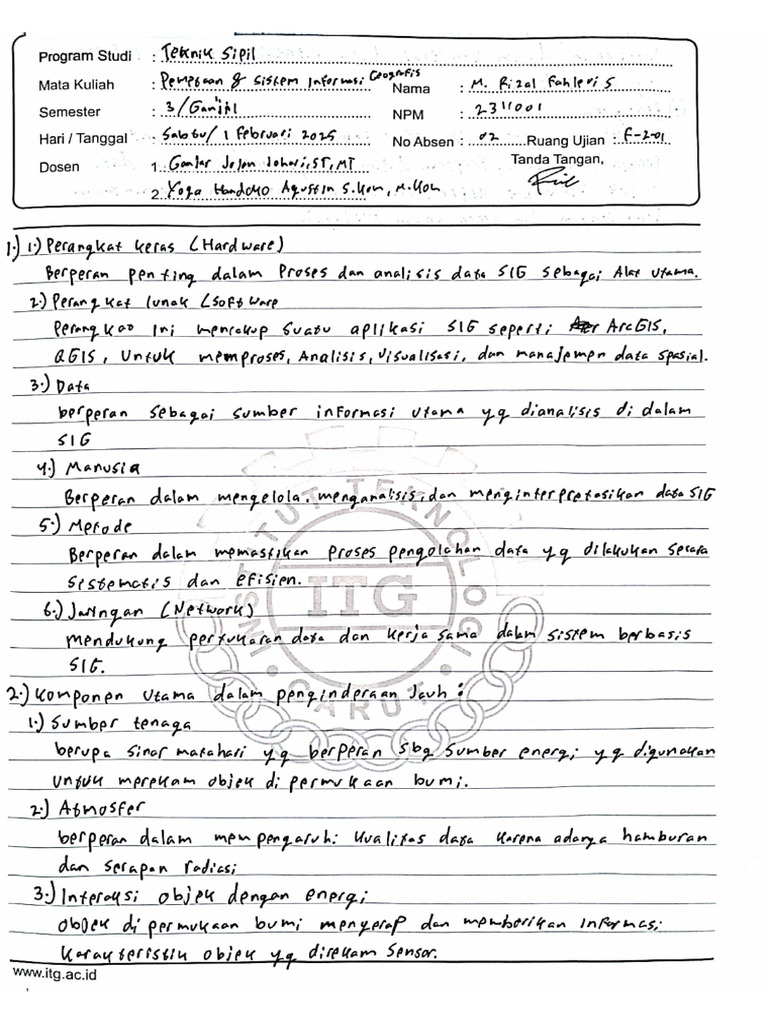 Program Studi : Teknik Sipil
Mata Kuliah : Pemetaan & Sistem Informasi Geografis
Nama : M. Rizal Fahlevi S
Semester : 3/Ganjil
NPM : 2311001
Hari / Tanggal : Sabtu/ 1 Februari 2025
No Absen : 02 Ruang Ujian : F-2-01
Dosen 1. Ganjar Jojon Johari, ST, MT
Tanda Tangan,
2. Yoga Handoko Agustin S.Kom, M.Kom
1.) 1.) Perangkat keras (Hardware)
Berperan penting dalam Proses dan analisis data SIG sebagai Alat utama.
2.) Perangkat lunak (Software
Perangkat ini mencakup suatu aplikasi SIG seperti; ArcGIS,
QGIS, Untuk memproses, Analisis, Visualisasi, dan manajemen data spasial.
3.) Data
berperan sebagai sumber informasi utama yg dianalisis di dalam
SIG
4.) Manusia
Berperan dalam mengelola, menganalisis, dan menginterpretasikan data SIG
5.) Metode
Berperan dalam memastikan Proses pengolahan data yg dilakukan secara
sistematis dan efisien.
6.) Jaringan (Network)
Mendukung pertukaran data dan kerja sama dalam sistem berbasis
SIG.
2.) Komponen Utama dalam penginderaan Jauh :
1.) Sumber tenaga
berupa sinar matahari yg berperan sbg sumber energi yg digunakan
untuk merekam objek di permukaan bumi.
2.) Atmosfer
berperan dalam mempengaruhi kualitas data karena adanya hamburan
dan serapan radiasi
3.) Interaksi objek dengan energi
objek di permukaan bumi menyerap dan memberikan informasi
karakteristik objek yg direkam sensor.
INSTITUT TEKNOLOGI GARUT
ITG
www.itg.ac.id